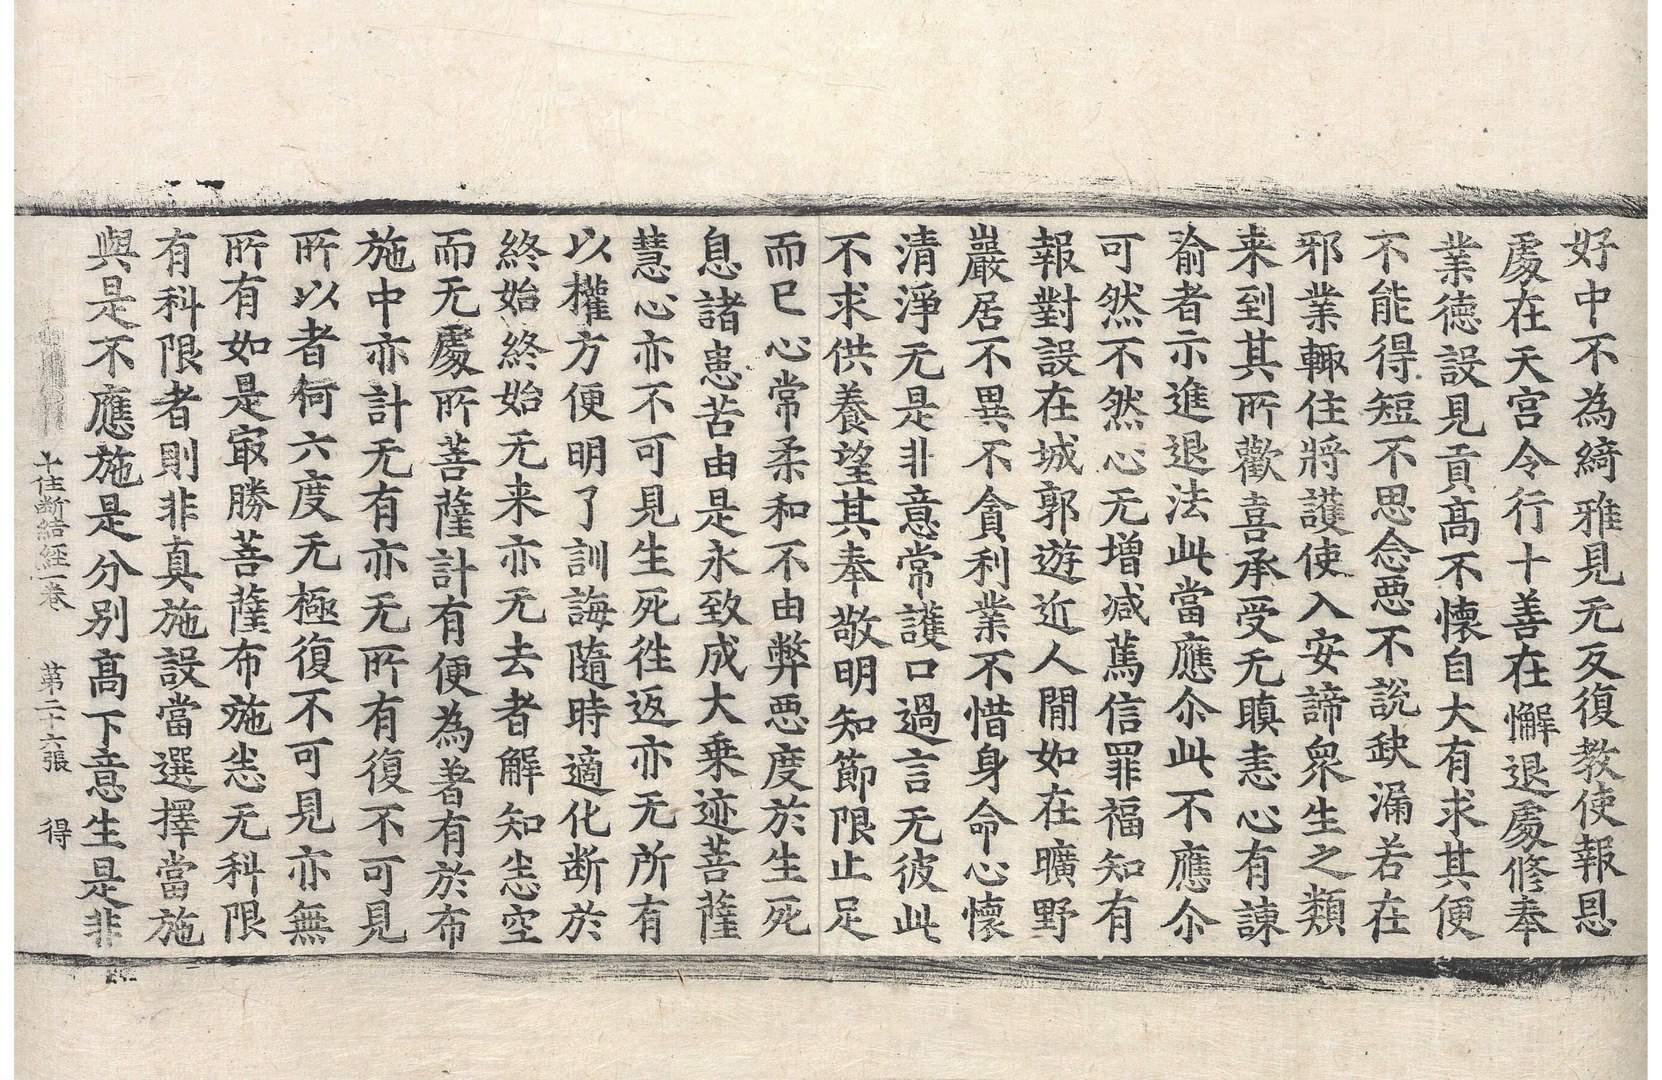 好中不為綺雅見无反復教使報恩
處在天宮令行十善在懈退處修奉
業德設見貢高不懷自大有求其便
不能得短不思念惡不說缺漏若在
邪業輙住將護使入安諦衆生之類
来到其所歡喜承受无瞋恚心有諫
喻者示進退法此當應尒此不應尒
可然不然心无增减萬信罪福知有
報對設在城郭遊近人閒如在曠野
巖居不異不貪利業不惜身命心懷
清淨无是非意常護口過言无彼此
不求供養望其奉敬明知節限止足
而已心常柔和不由弊惡度於生死
息諸患苦由是永致成大乗迹菩薩
慧心亦不可見生死徃返亦无所有
以權方便明了訓誨隨時適化断於
終始終始无来亦无去者解知恚空
而无處所菩薩計有便為著有於布
施中亦計无有亦无所有復不可見
所以者何六度无極復不可見亦無
所有如是㝡勝菩薩布施恚无科限
有科限者則非真施設當選擇當施
與是不應施是分別高下意生是非
十住斷結経一卷 第二十六張 得